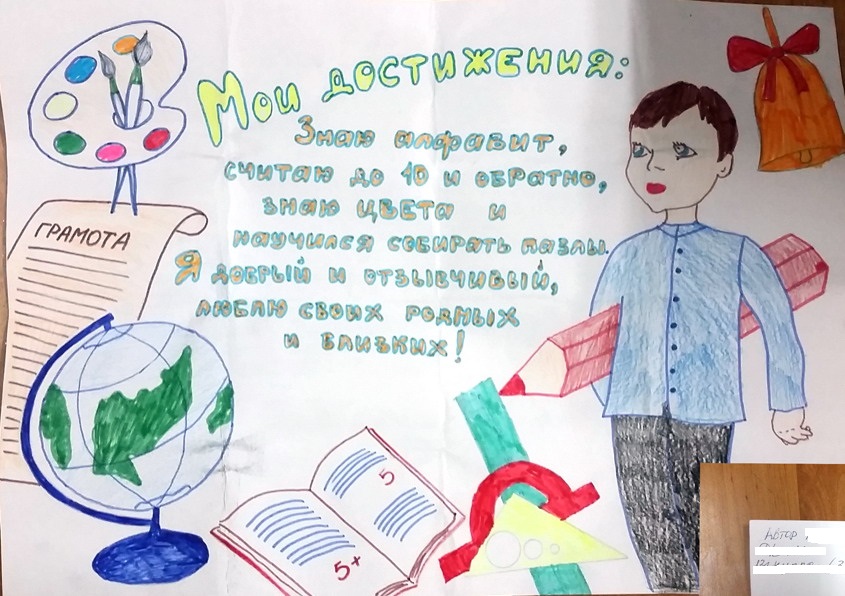 Мои достижения:
Знаю алфавит,
считаю до 10 и обратно,
знаю цвета и
научился собирать пазлы.
Я добрый и отзывчивый,
люблю своих родных
и близких!
ГРАМОТА
5
5+
АВТОР